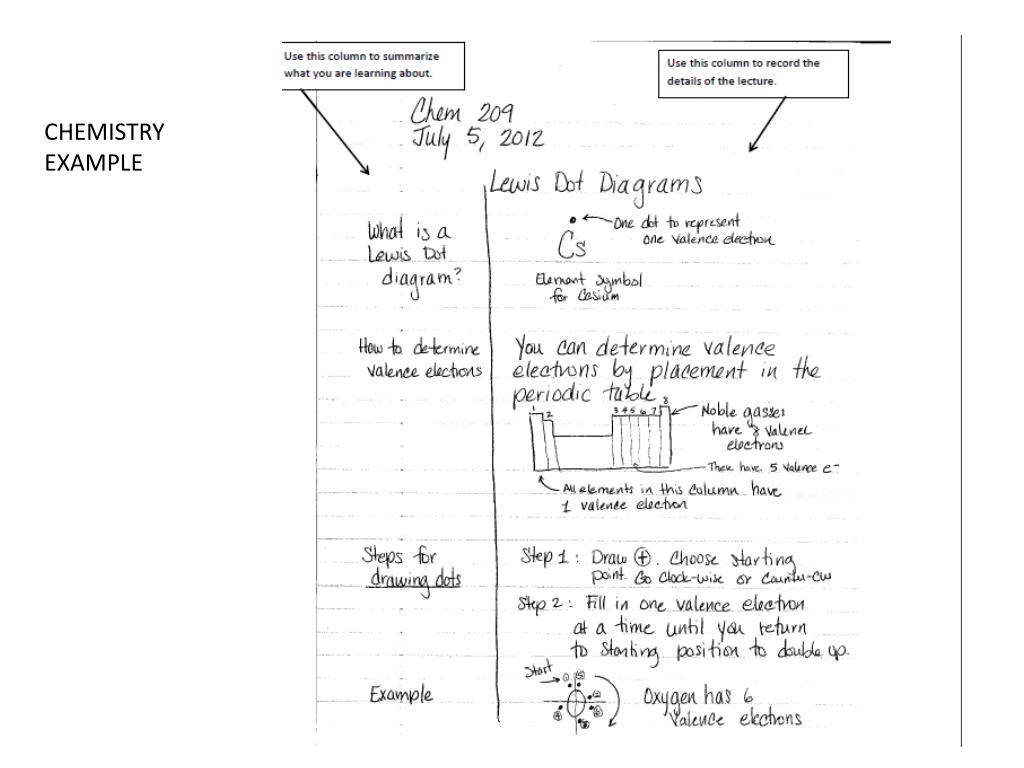 Use this column to summarize
what you are learning about.
Use this column to record the
details of the lecture.
CHEMISTRY
EXAMPLE
Chem 209
July 5, 2012
Lewis Dot Diagrams
What is a
Lewis Dot
diagram?
One dot to represent
one valence electron
Cs
Element symbol
for Cesium
How to determine
valence electrons
You can determine valence
electrons by placement in the
periodic table
1 2 3 4 5 6 7 8
Noble gasses
have 8 valence
electrons
These have 5 valence e-
All elements in this column have
1 valence electron
Steps for
drawing dots
Step 1: Draw ⊕. Choose starting
point. Go clock-wise or counter-cw
Step 2: Fill in one valence electron
at a time until you return
to starting position to double up.
Example
Start
Oxygen has 6
valence electrons